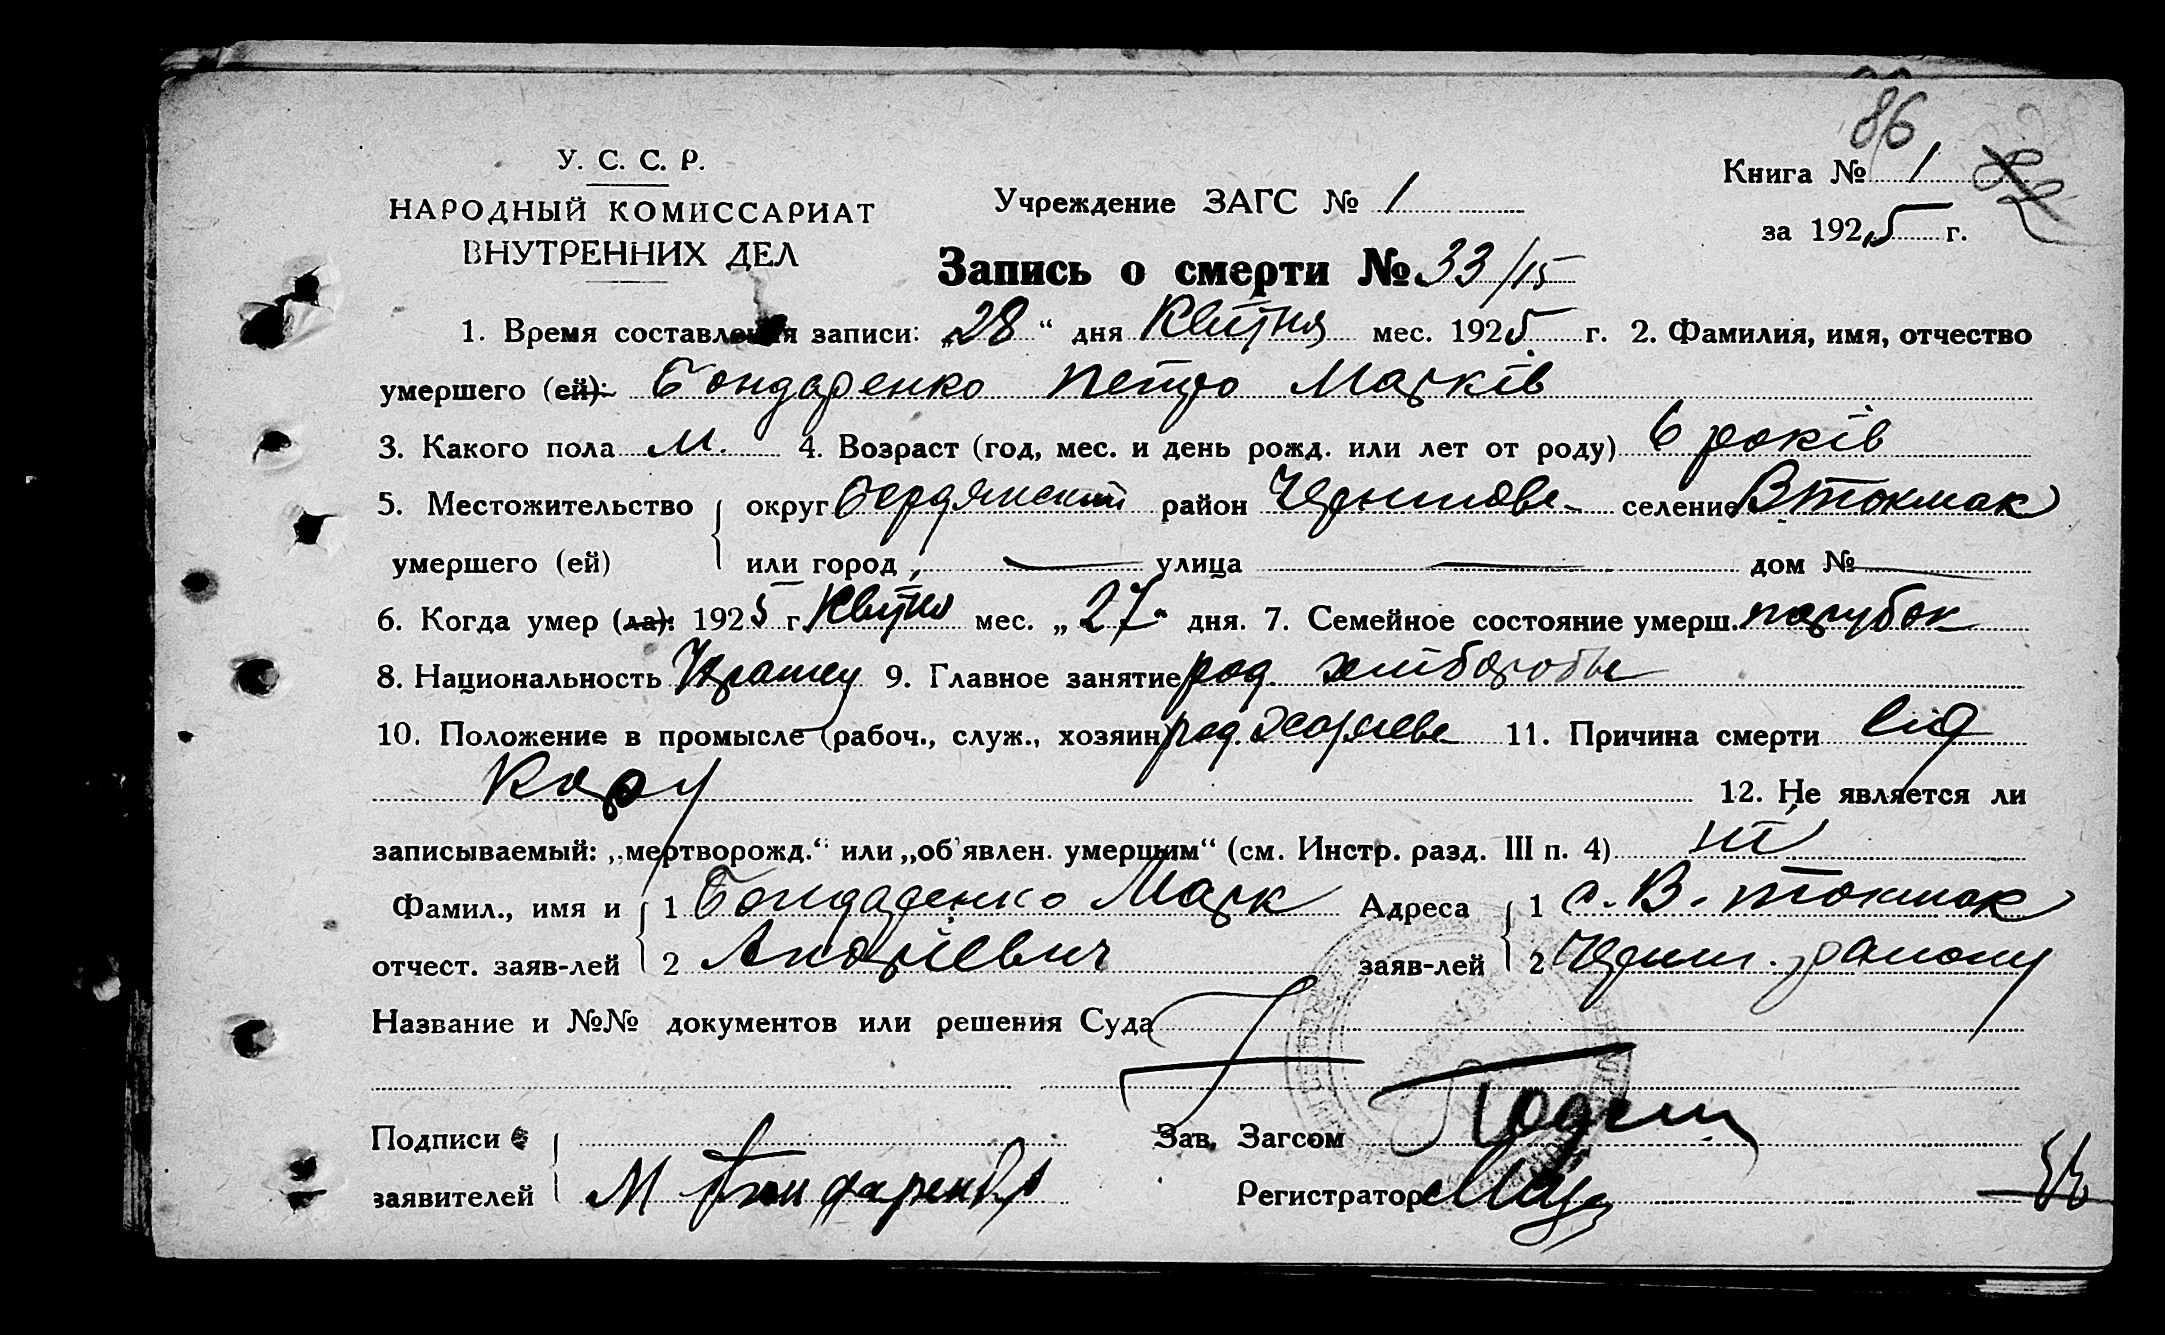 86
У. С. С. Р.
НАРОДНЫЙ КОМИССАРИАТ
ВНУТРЕННИХ ДЕЛ
Учреждение ЗАГС № 1
Книга № 1
за 1925 г.
Запись о смерти № 33/15
1. Время составления записи: „28“ дня Квітня мес. 1925 г. 2. Фамилия, имя, отчество
умершего (ей): Бондаренко Петро Марків
3. Какого пола м. 4. Возраст (год, мес. и день рожд. или лет от роду) 6 років
5. Местожительство округ Бердянский район Чернигове- селение В Токмак
умершего (ей) или город — улица — дом № —
6. Когда умер (ла): 1925 г. Квітня мес. „27“ дня. 7. Семейное состояние умерш. парубок
8. Национальность Украинец 9. Главное занятие род. хлібороби
10. Положение в промысле (рабоч., служ., хозяин) род. хозяева 11. Причина смерти від
кору 12. Не является ли
записываемый: „мертворожд.“ или „об'явлен. умершим“ (см. Инстр. разд. III п. 4) ні
Фамил., имя и 1 Бондаренко Марк Адреса 1 с. В. Токмак
отчест. заяв-лей 2 Андрієвич заяв-лей 2 Черниг. району
Название и №№ документов или решения Суда
Подписи Зав. Загсом
заявителей М Бондаренко Регистратор